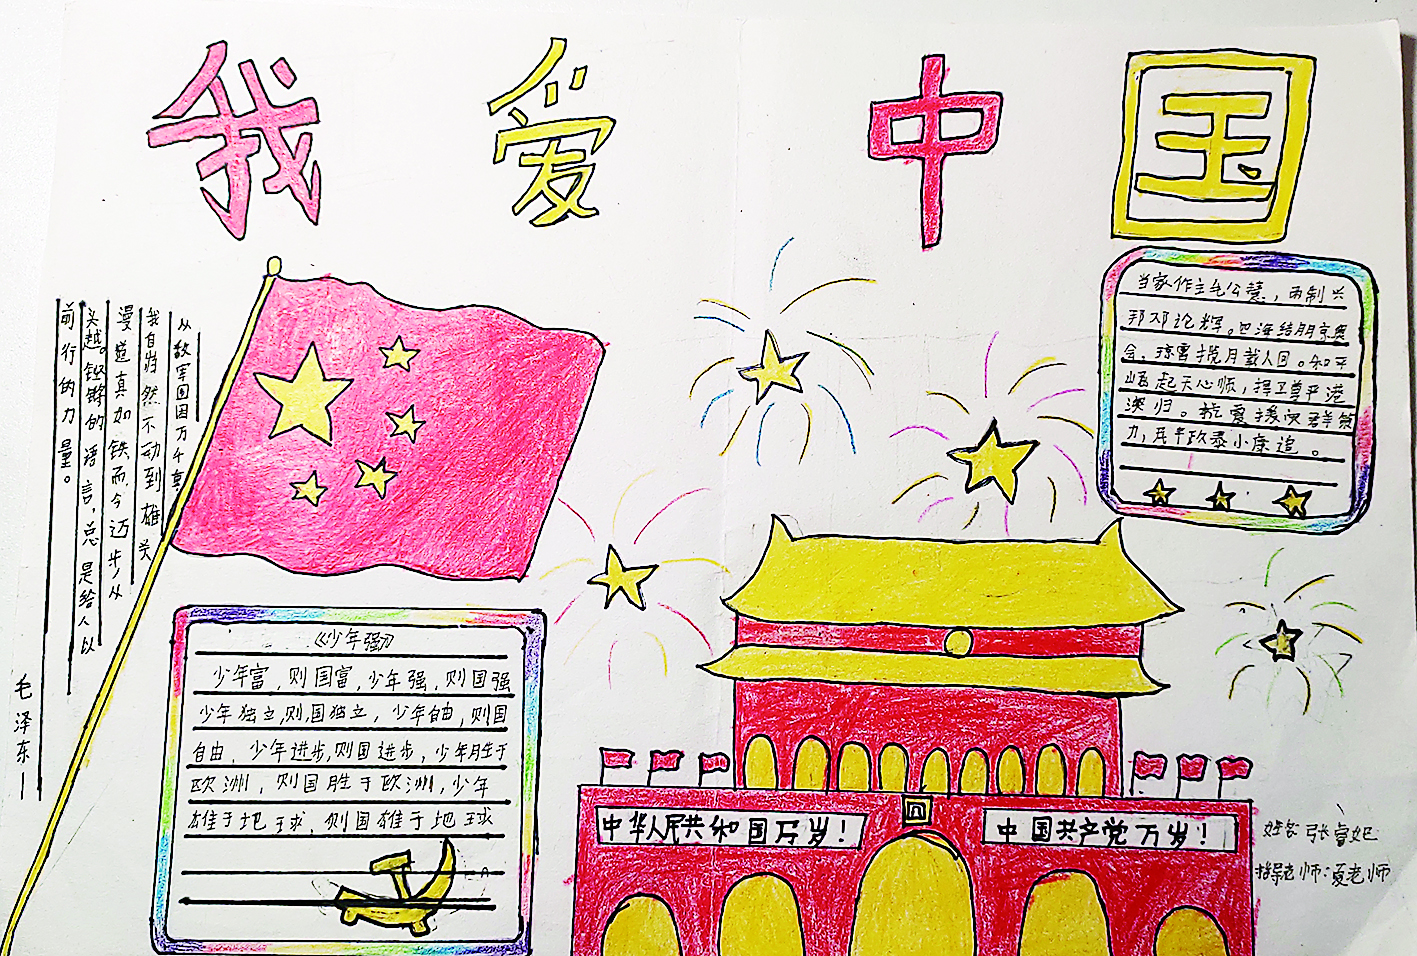 我爱中国
从敌军围困万千
我自归然不动到雄关
漫道真如铁而今迈步，从
头越。铿锵的语言，总是给人以
前行的力量。
毛泽东—
当家作主毛公慧，两制兴
邦邓论辉。四海结朋京奥
会，琼霄揽月载人回。和平
崛起天心顺，捍卫尊严港
澳归。抗震援灾群策
力，民丰政泰小康追。
《少年强》
少年富，则国富，少年强，则国强
少年独立，则国独立，少年自由，则国
自由，少年进步，则国进步，少年胜于
欧洲，则国胜于欧洲，少年
雄于地球，则国雄于地球
中华人民共和国万岁！
中国共产党万岁！
姓名 张睿妃
指导老师：夏老师